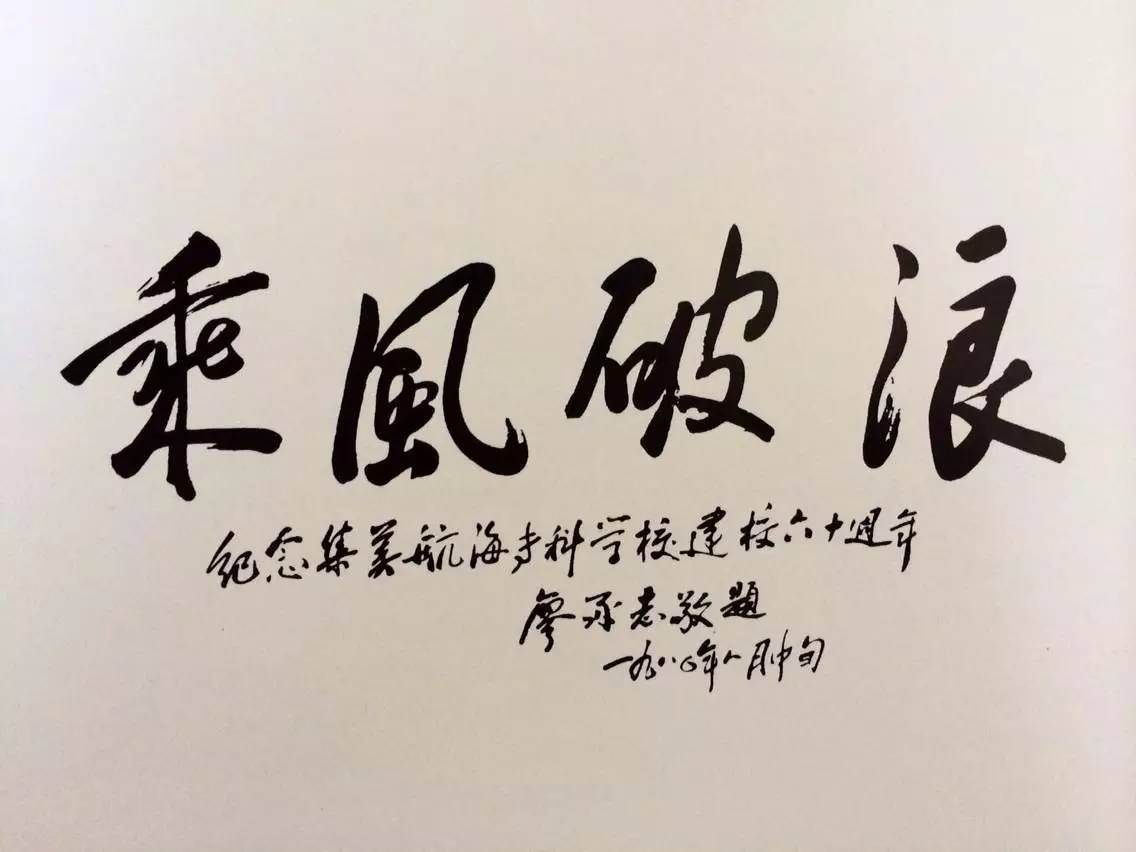 乘風破浪
紀念集美航海专科学校建校六十週年
廖承志敬題
一九八〇年八月中旬